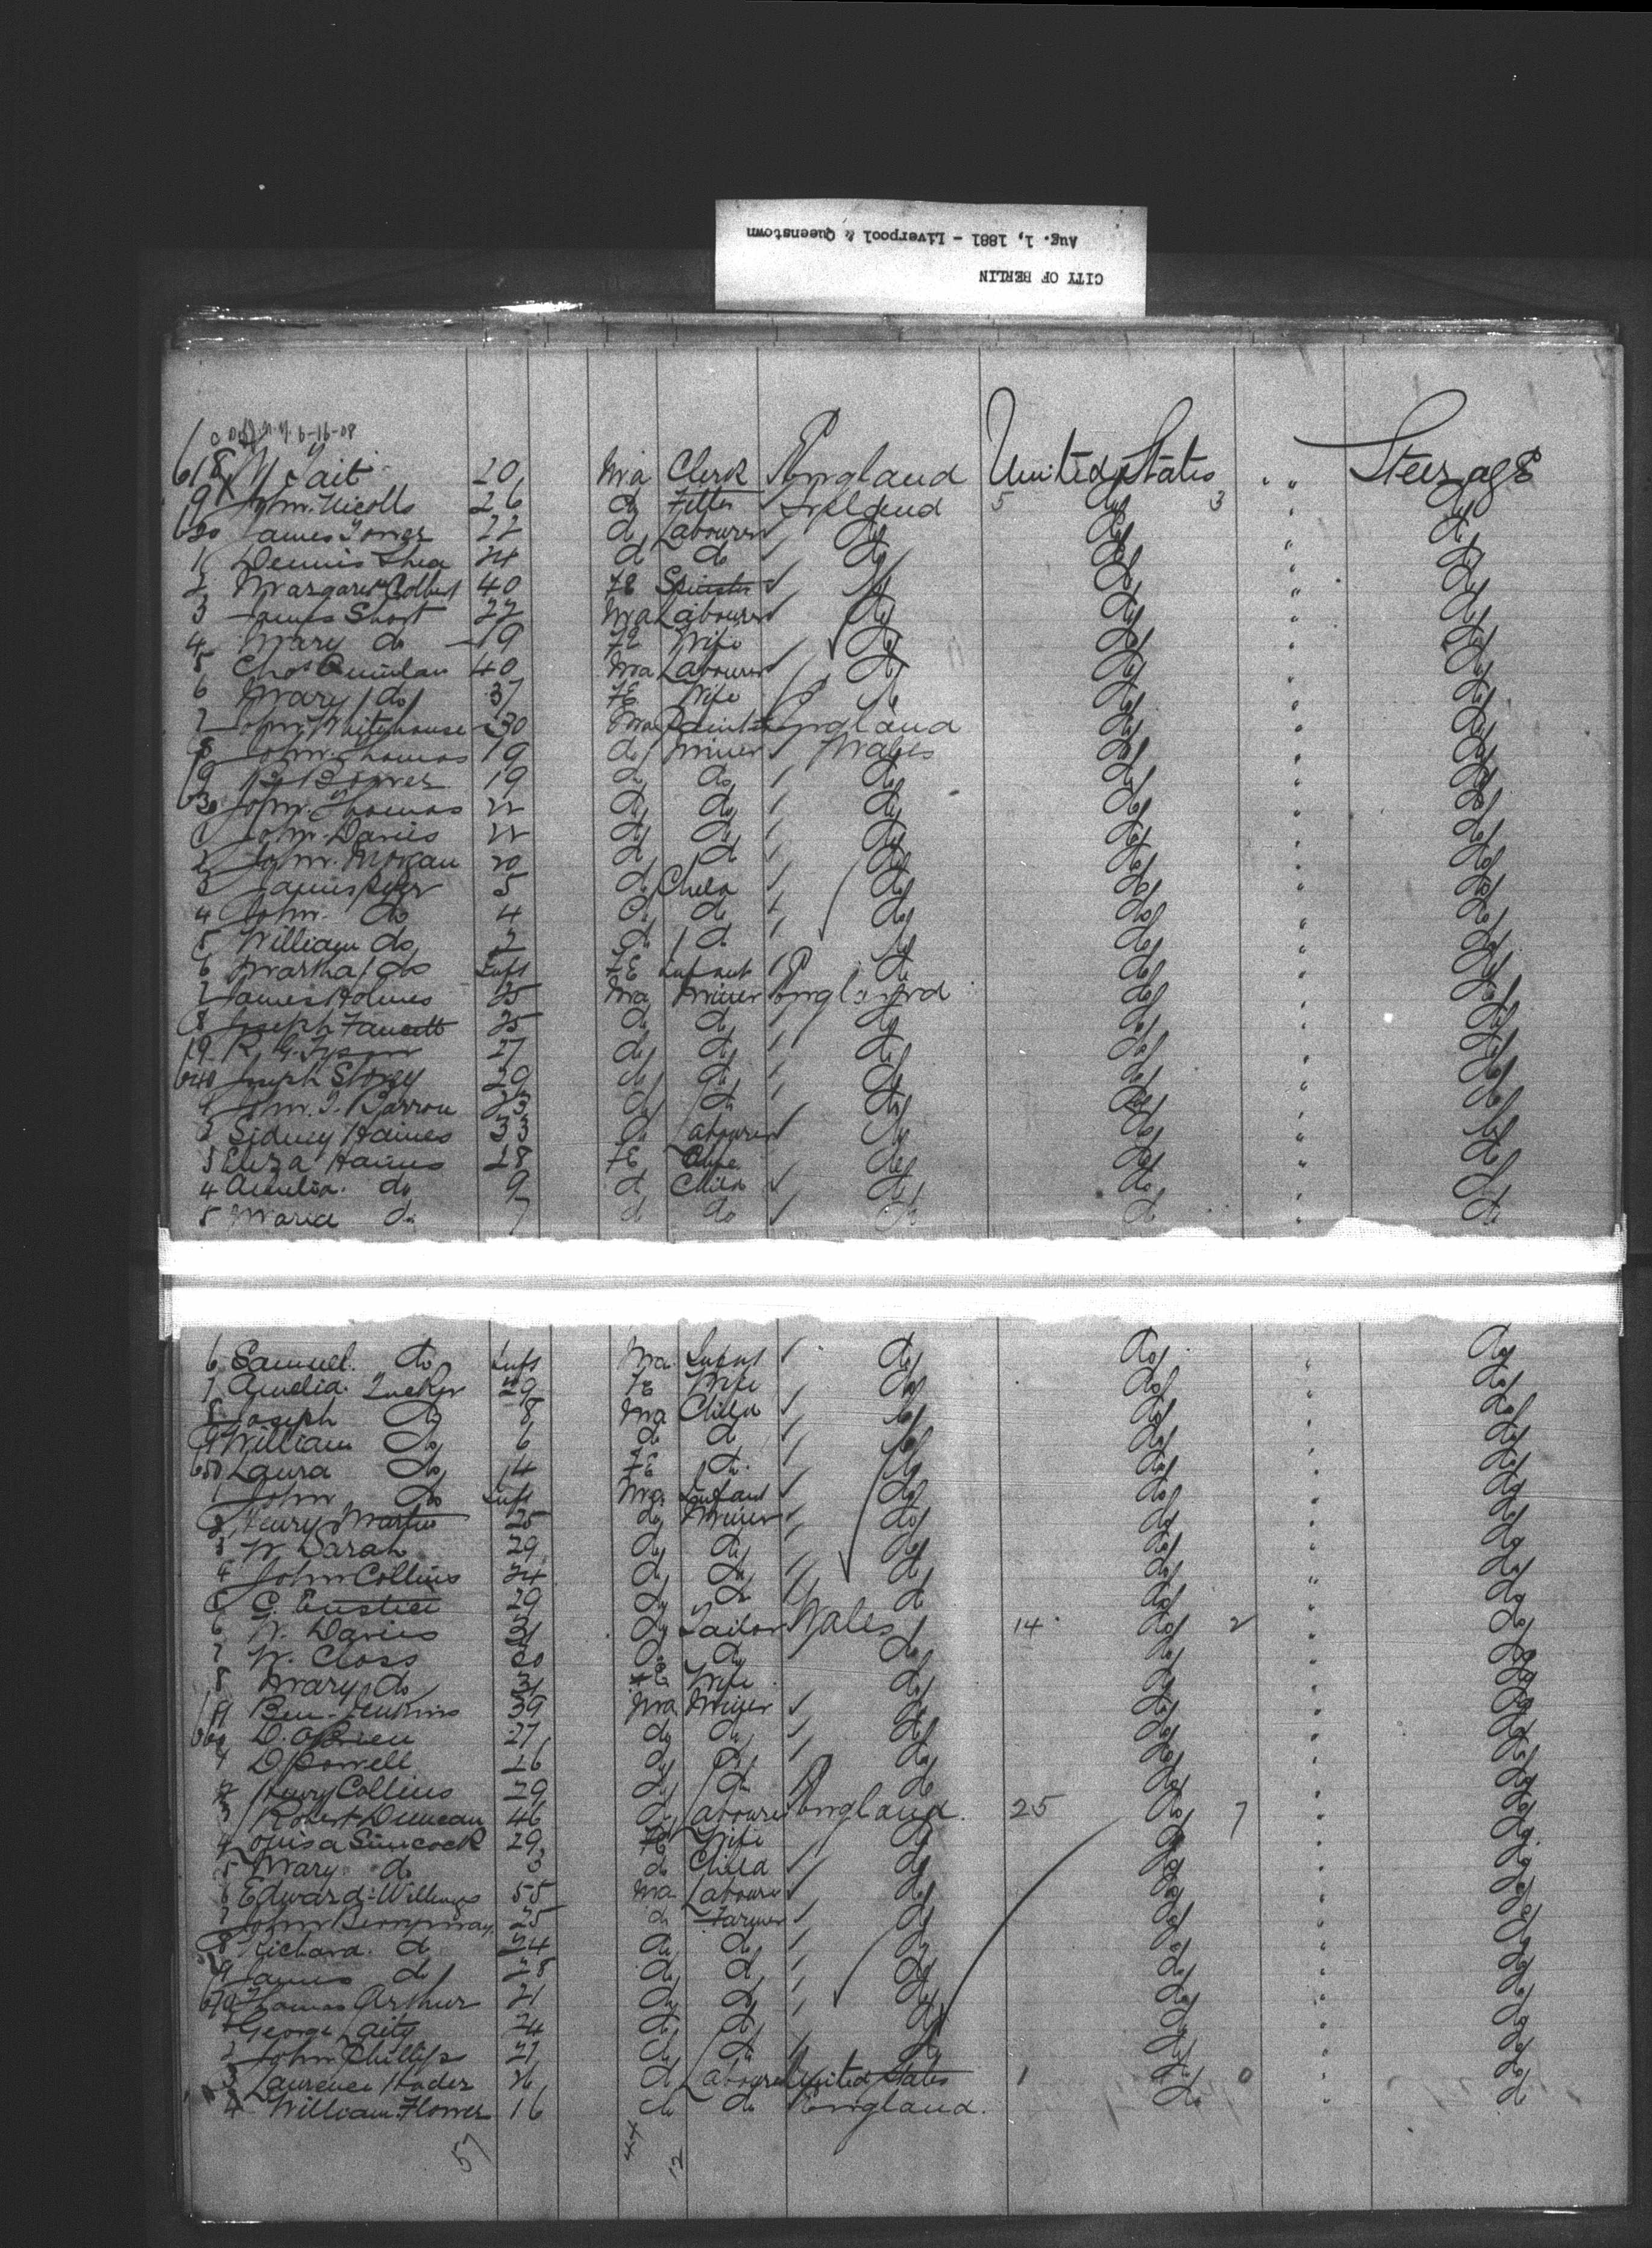 CITY OF BERLIN
Aug. 1, 1881 - Liverpool & Queenstown
6-16-08
618 Tait 20 Ma Clerk England United States " Steerage
9 John Nicolls 26 do Fitter Ireland 5 do 3 " do
620 James 22 do Labourer do do " do
1 Dennis Shea 24 do do do do " do
2 Margaret Colbert 40 Fe Spinster do do " do
3 James Short 22 Ma Labourer do do " do
4 Mary do 19 Fe Wife do do " do
5 Chas Quinlan 40 Ma Labourer do do " do
6 Mary do 37 Fe Wife do do " do
7 John Whitehouse 30 Ma England do " do
8 John Thomas 19 do Miner Wales do " do
9 19 do do do do " do
630 John Thomas 22 do do do do " do
1 John Davies 22 do do do do " do
2 John Morgan 20 do do do do " do
3 James 5 do Child do do " do
4 John do 4 do do do do " do
5 William do 2 do do do do " do
6 Martha do Inft Fe Infant do do " do
7 James Holmes 25 Ma Miner England do " do
8 Joseph Fawcett 25 do do do do " do
9 R. G. Tyson 27 do do do do " do
640 Joseph Storey 29 do do do do " do
1 John. T. Barron 23 do do do do " do
2 Sidney Haines 33 do Labourer do do " do
3 Eliza Haines 28 Fe Wife do do " do
4 Amelia do 9 do Child do do " do
5 Maria do 7 do do do do " do
6 Samuel do Inft Ma Infant do do " do
7 Amelia Tucker 29 Fe Wife do do " do
8 Joseph do 8 Ma Child do do " do
9 William do 6 do do do do " do
650 Laura do 4 Fe do do do " do
1 John do Inft Ma Infant do do " do
2 Henry Martin 25 do Miner do do " do
3 W Sarah 29 do do do do " do
4 John Collins 24 do do do do " do
5 C. Eustice 29 do do do do " do
6 W. Davies 31 do Tailor Wales 14 do 2 " do
7 W. Closs 30 do do do do " do
8 Mary do 31 Fe Wife do do " do
9 Ben Jenkins 39 Ma Miner do do " do
660 D. OBrien 27 do do do do " do
1 D Powell 26 do do do do " do
2 Henry Collins 29 do do do do " do
3 Robert Duncan 46 do Labourer England. 25 do 7 " do
4 Louisa Simcock 29 Fe Wife do do " do
5 Mary do 3 do Child do do " do
6 Edward Williams 55 Ma Labourer do do " do
7 John Berryman 25 do Farmer do do " do
8 Richard. do 24 do do do do " do
9 James do 28 do do do do " do
670 Thomas Arthur 21 do do do do " do
1 George Laity 24 do do do do " do
2 John Phillips 27 do do do do " do
3 Laurence Hader do Labourer United States 1 do 0 " do
4 William Flower 16 do do England. do " do
57 44 12